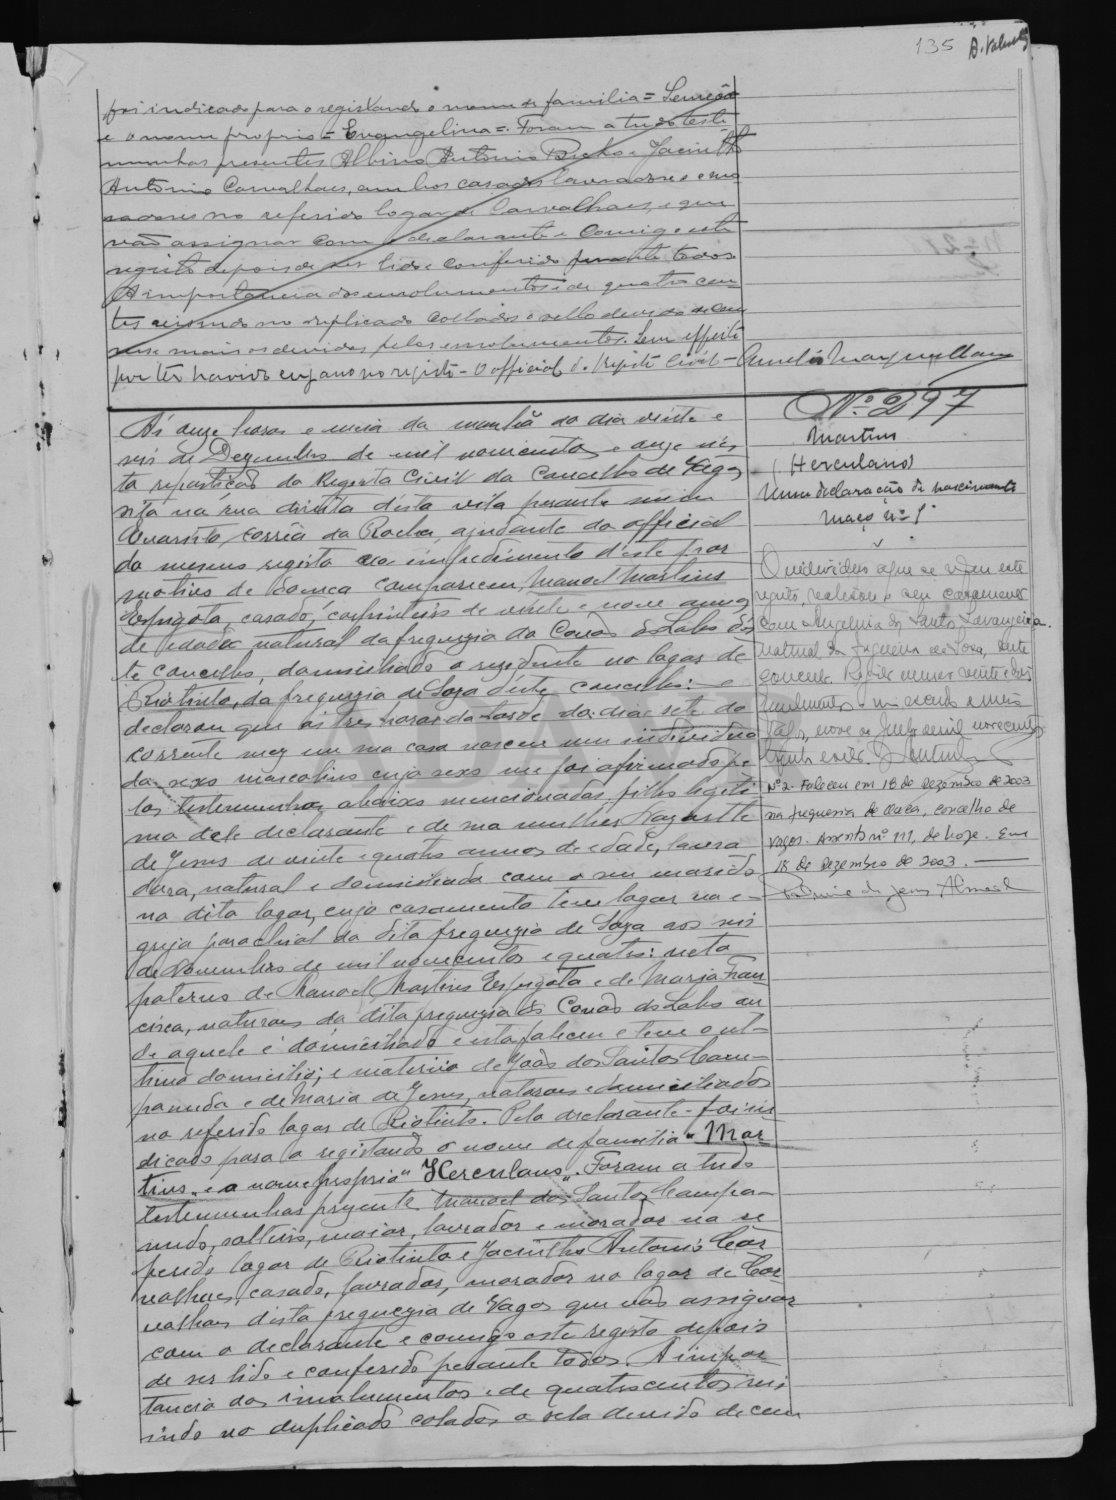 135 A. Valente
foi indicado para o registando o nome de familia =
e o nome proprio = Evangelina =. Foram a tudo teste
munhas presentes Albino Antonio e Jacintho
Antonio Carvalhaes, ambos casados lavradores e mo
radores no referido logar de Carvalhaes, e que
vão assignar com o declarante e comigo este
registo depois de ser lido e conferido perante todos
A importancia dos emolumentos é de quatro cen
tos reis indo no duplicado collados o sello devido de cem
reis e mais os devidos pelos emolumentos. Sem effeito
por ter havido engano no registo - O official do Registo Civil -
Ás onze horas e meia da manhã do dia vinte e
seis de Dezembro de mil novecentos e onze nes
ta repartição do Registo Civil do Concelho de Vagos
sita na rua direita desta vila perante mim
Evaristo Corrêa da Rocha, ajudante do official
do mesmo registo no impedimento d'este por
motivo de doença compareceu Manoel Martins
Espigota, casado, carpinteiro de vinte e nove annos
de edade natural da freguezia da Covão do Lobo des
te concelho, domiciliado e rezidente no logar de
Riotinto, da freguezia de Soza deste concelho: e
declarou que ás tres horas da tarde do dia sete do
corrente mez em sua casa nasceu um individuo
do sexo masculino cujo sexo me foi afirmado pe
las testemunhas abaixo mencionadas, filho legiti
mo dele declarante e de sua mulher Nazareth
de Jesus de vinte e quatro annos de edade, lavra
dora, natural e domiciliada com o seu marido
no dito logar, cujo casamento teve logar na e-
greja parochial da dita freguezia de Soza aos seis
de Novembro de mil novecentos e quatro: neto
paterno de Manoel Martins Espigota e de Maria Fran
cisca, naturaes da dita freguezia do Covão do Lobo on
de aquele é domiciliado e esta faleceu e teve o ul-
timo domicilio; e materno de João dos Santos Cam-
panudo e de Maria de Jesus, naturaes e domiciliados
no referido logar de Riotinto. Pelo declarante foi in
dicado para o registando o nome de familia "Mar
tins" e o nome proprio "Herculano". Foram a tudo
testemunhas prezente Manoel dos Santos Campa-
nudo, solteiro, maior, lavrador e morador no re
ferido logar de Riotinto e Jacintho Antonio Car
valhaes, casado, lavrador, morador no logar de Car
valhaes desta freguezia de Vagos que vão assignar
com o declarante e comigo este registo depois
de ser lido e conferido perante todos. A impor
tancia dos emolumentos é de quatrocentos reis
indo no duplicado colados o selo devido de cem
Nº 297
Martins
(Herculano)
Uma declaração de nascimento
Maço nº 1
O individuo a que se refere este
registo, realizou o seu casamento
com Angelina dos Santos Laranjeira
natural da freguesia de Soza, deste
concelho. Registo numero vinte e dois
Nº 2 - Faleceu em 18 de Dezembro de 2003
na freguesia de Ouca, concelho de
Vagos. Assento nº 111, de hoje. Em
18 de Dezembro de 2003. —